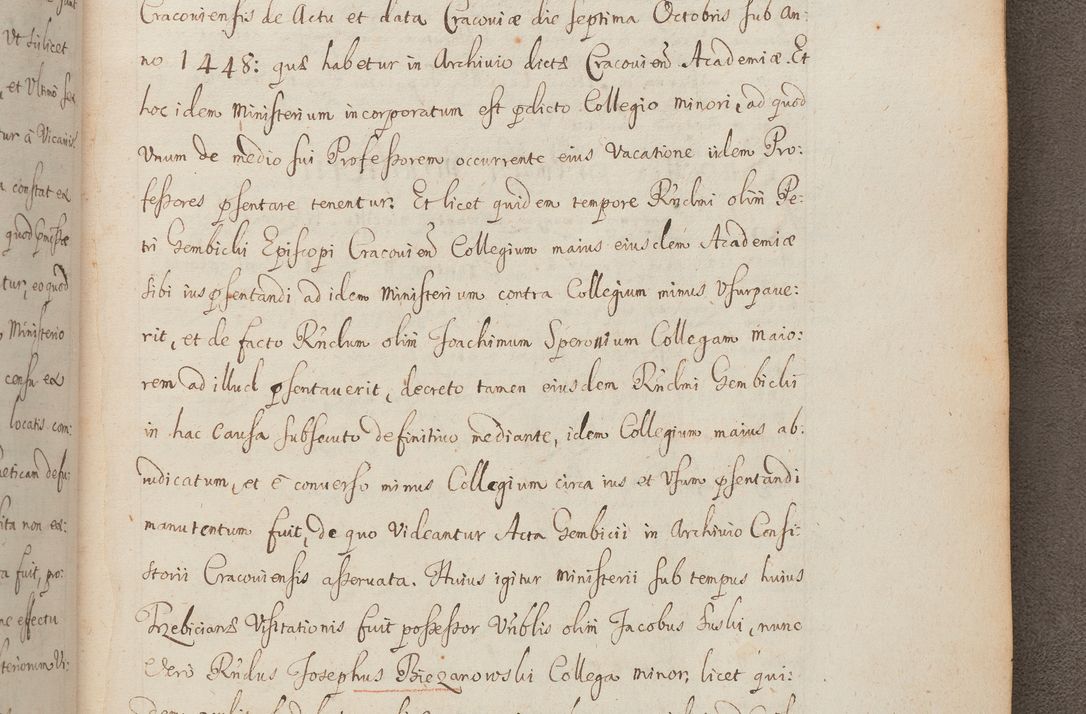 Ut scilicet
et Ultimo
tur à Vicariis
constat ex
quod
tur, eo quod
Ministerio
ex
locatis com:
non ex:
fuit, pro:
effectu
Cracoviensis de Actu et data Cracoviæ die septima Octobris sub An:
no 1448: quæ habetur in Archivio dictæ Cracovien̄ Academiæ. Et
hoc idem Ministerium incorporatum est p̄dicto Collegio minori, ad quod
Unum de medio sui Professorem occurrente eius Vacatione iidem Pro:
fessores p̄sentare tenentur: Et licet quidem tempore Rn̄dmi olim Pe:
tri Gembicki Episcopi Cracovien̄ Collegium maius eiusdem Academiæ
sibi ius p̄sentandi ad idem Ministerium contra Collegium minus Usurpave:
rit, et de facto Rn̄dum olim Joachimum Speronium Collegam Maio:
rem ad illud p̄sentaverit, decreto tamen eiusdem Rn̄dmi Gembicki
in hac Causa subsecuto definitivo mediante, idem Collegium maius ab:
iudicatum, et è converso minus Collegium circa ius et Usum p̄sentandi
manutentum fuit, de quo Videantur Acta Gembicii in Archivio Consi:
storii Cracoviensis asservata. Huius igitur Ministerii sub tempus huius
Trzebicianæ Visitationis fuit possessor Vn̄blis olim Jacobus Suski, nunc
Vero Rn̄dus Josephus Biezanowski Collega minor, licet qui: